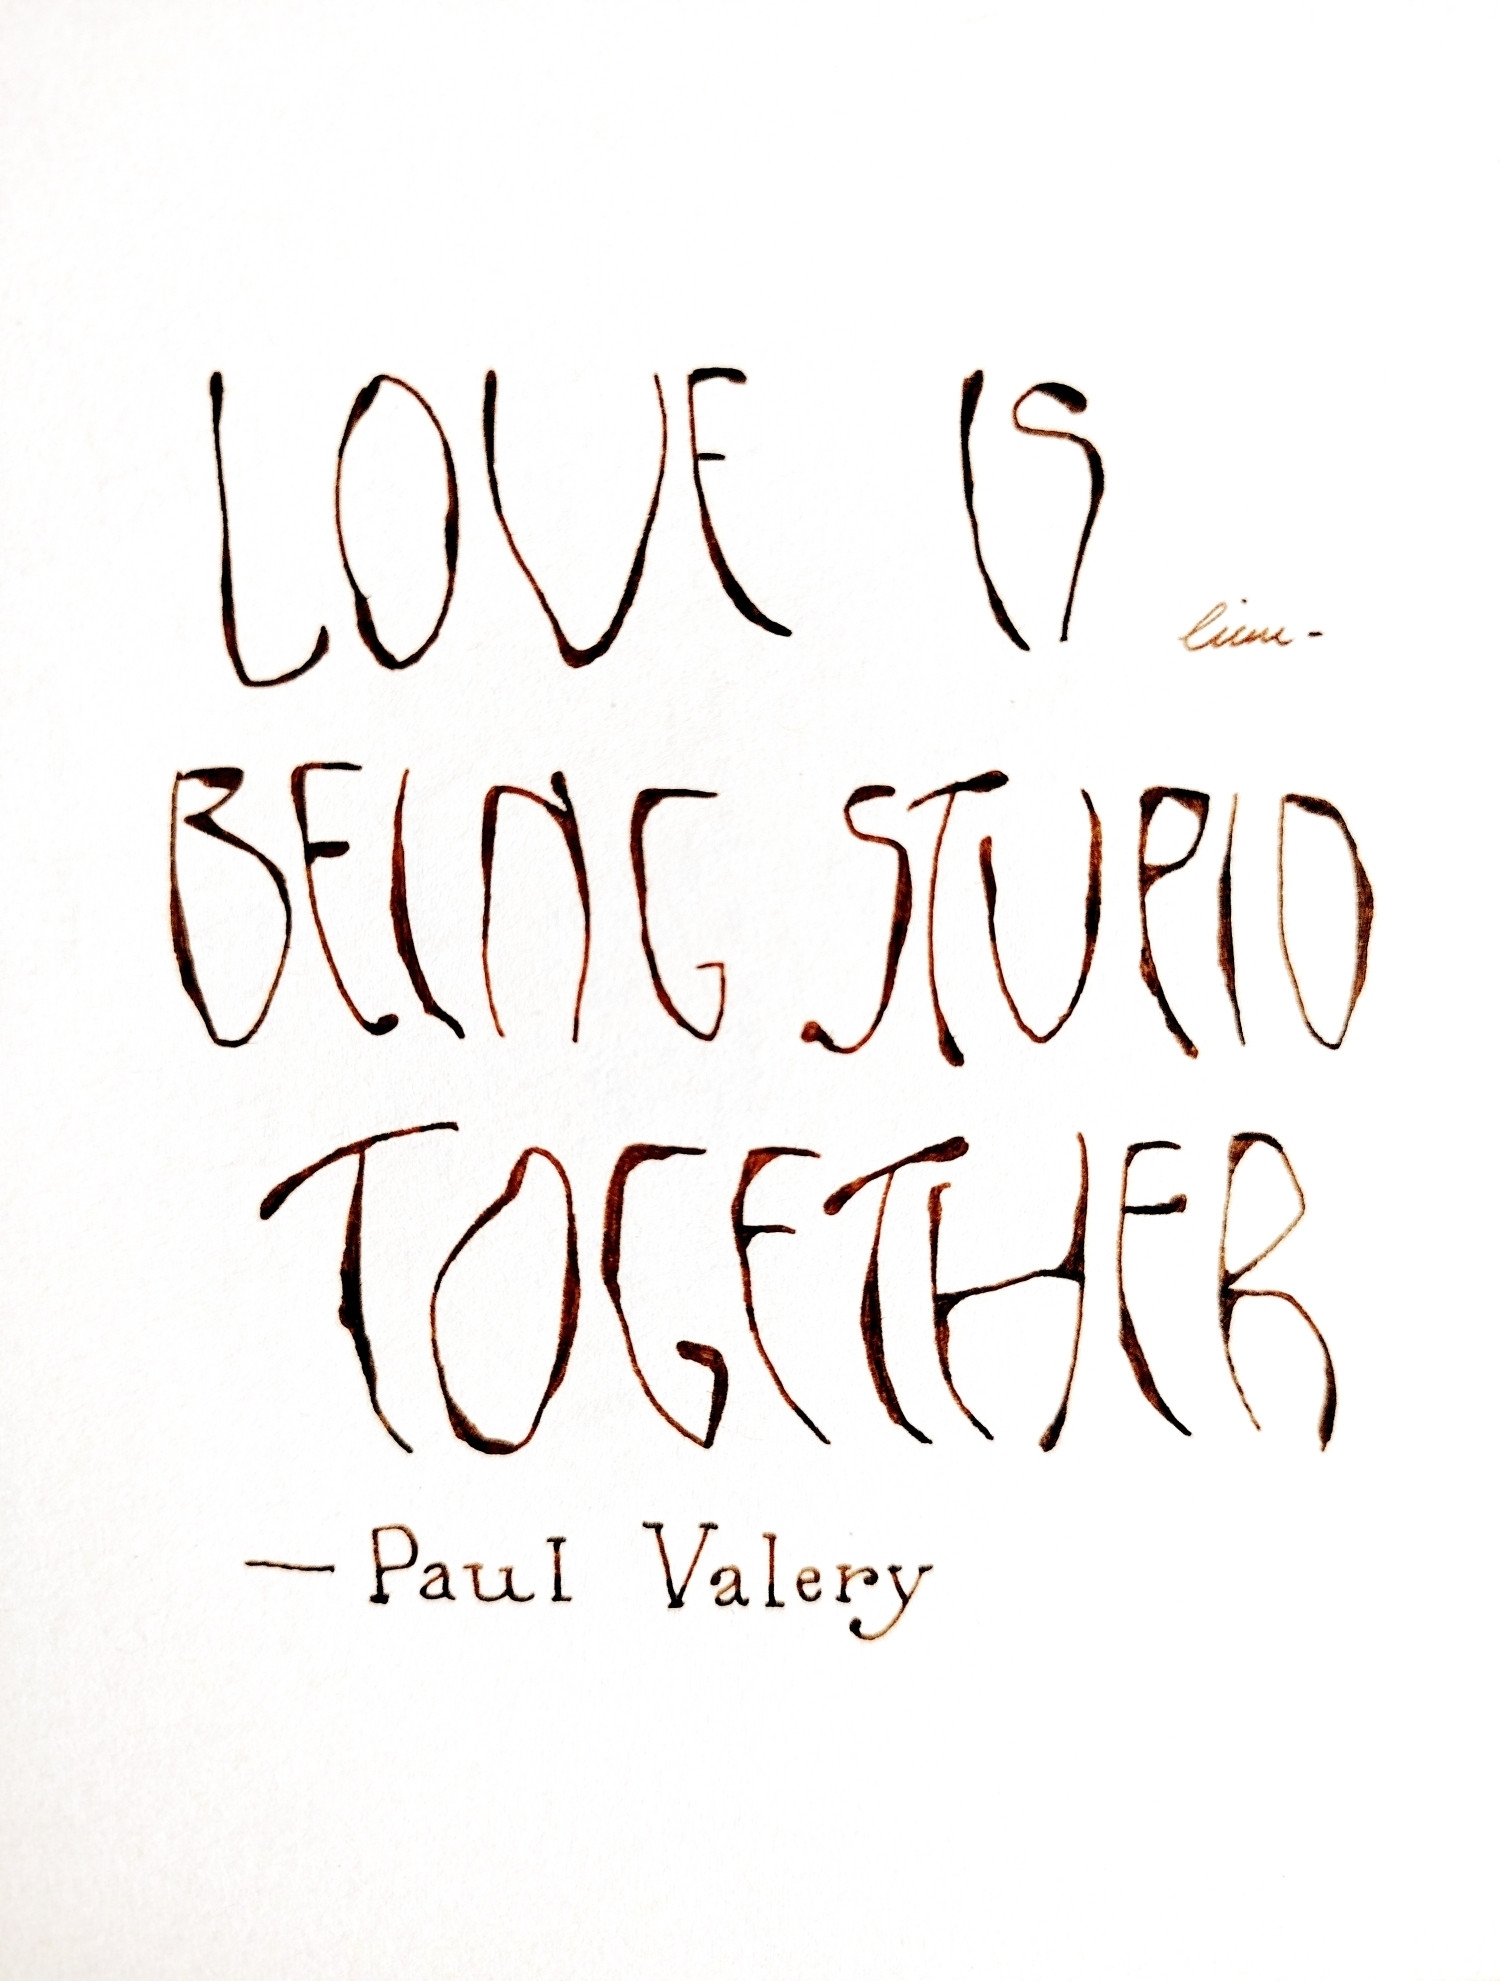 LOVE IS
BEING STUPID
TOGETHER
— Paul Valery